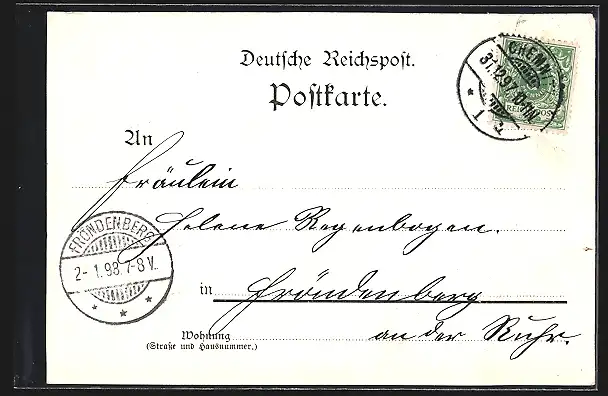 Deutsche Reichspost.
Postkarte.
CHEMNITZ
31.12.97
* 1
REICHSPOST
An
Fräulein
Helene Regenbogen.
FRÖNDENBERG
2-1.98.7-8V.
* * *
in Fröndenberg
an der Ruhr.
Wohnung
(Straße und Hausnummer.)